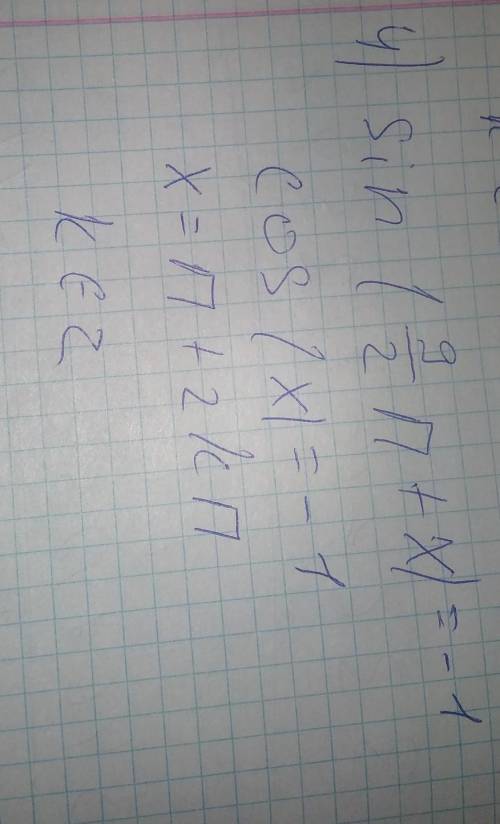 4) sin(9/2 П + x) = -1
cos(x) = -1
x = П + 2kП
k ∈ Z